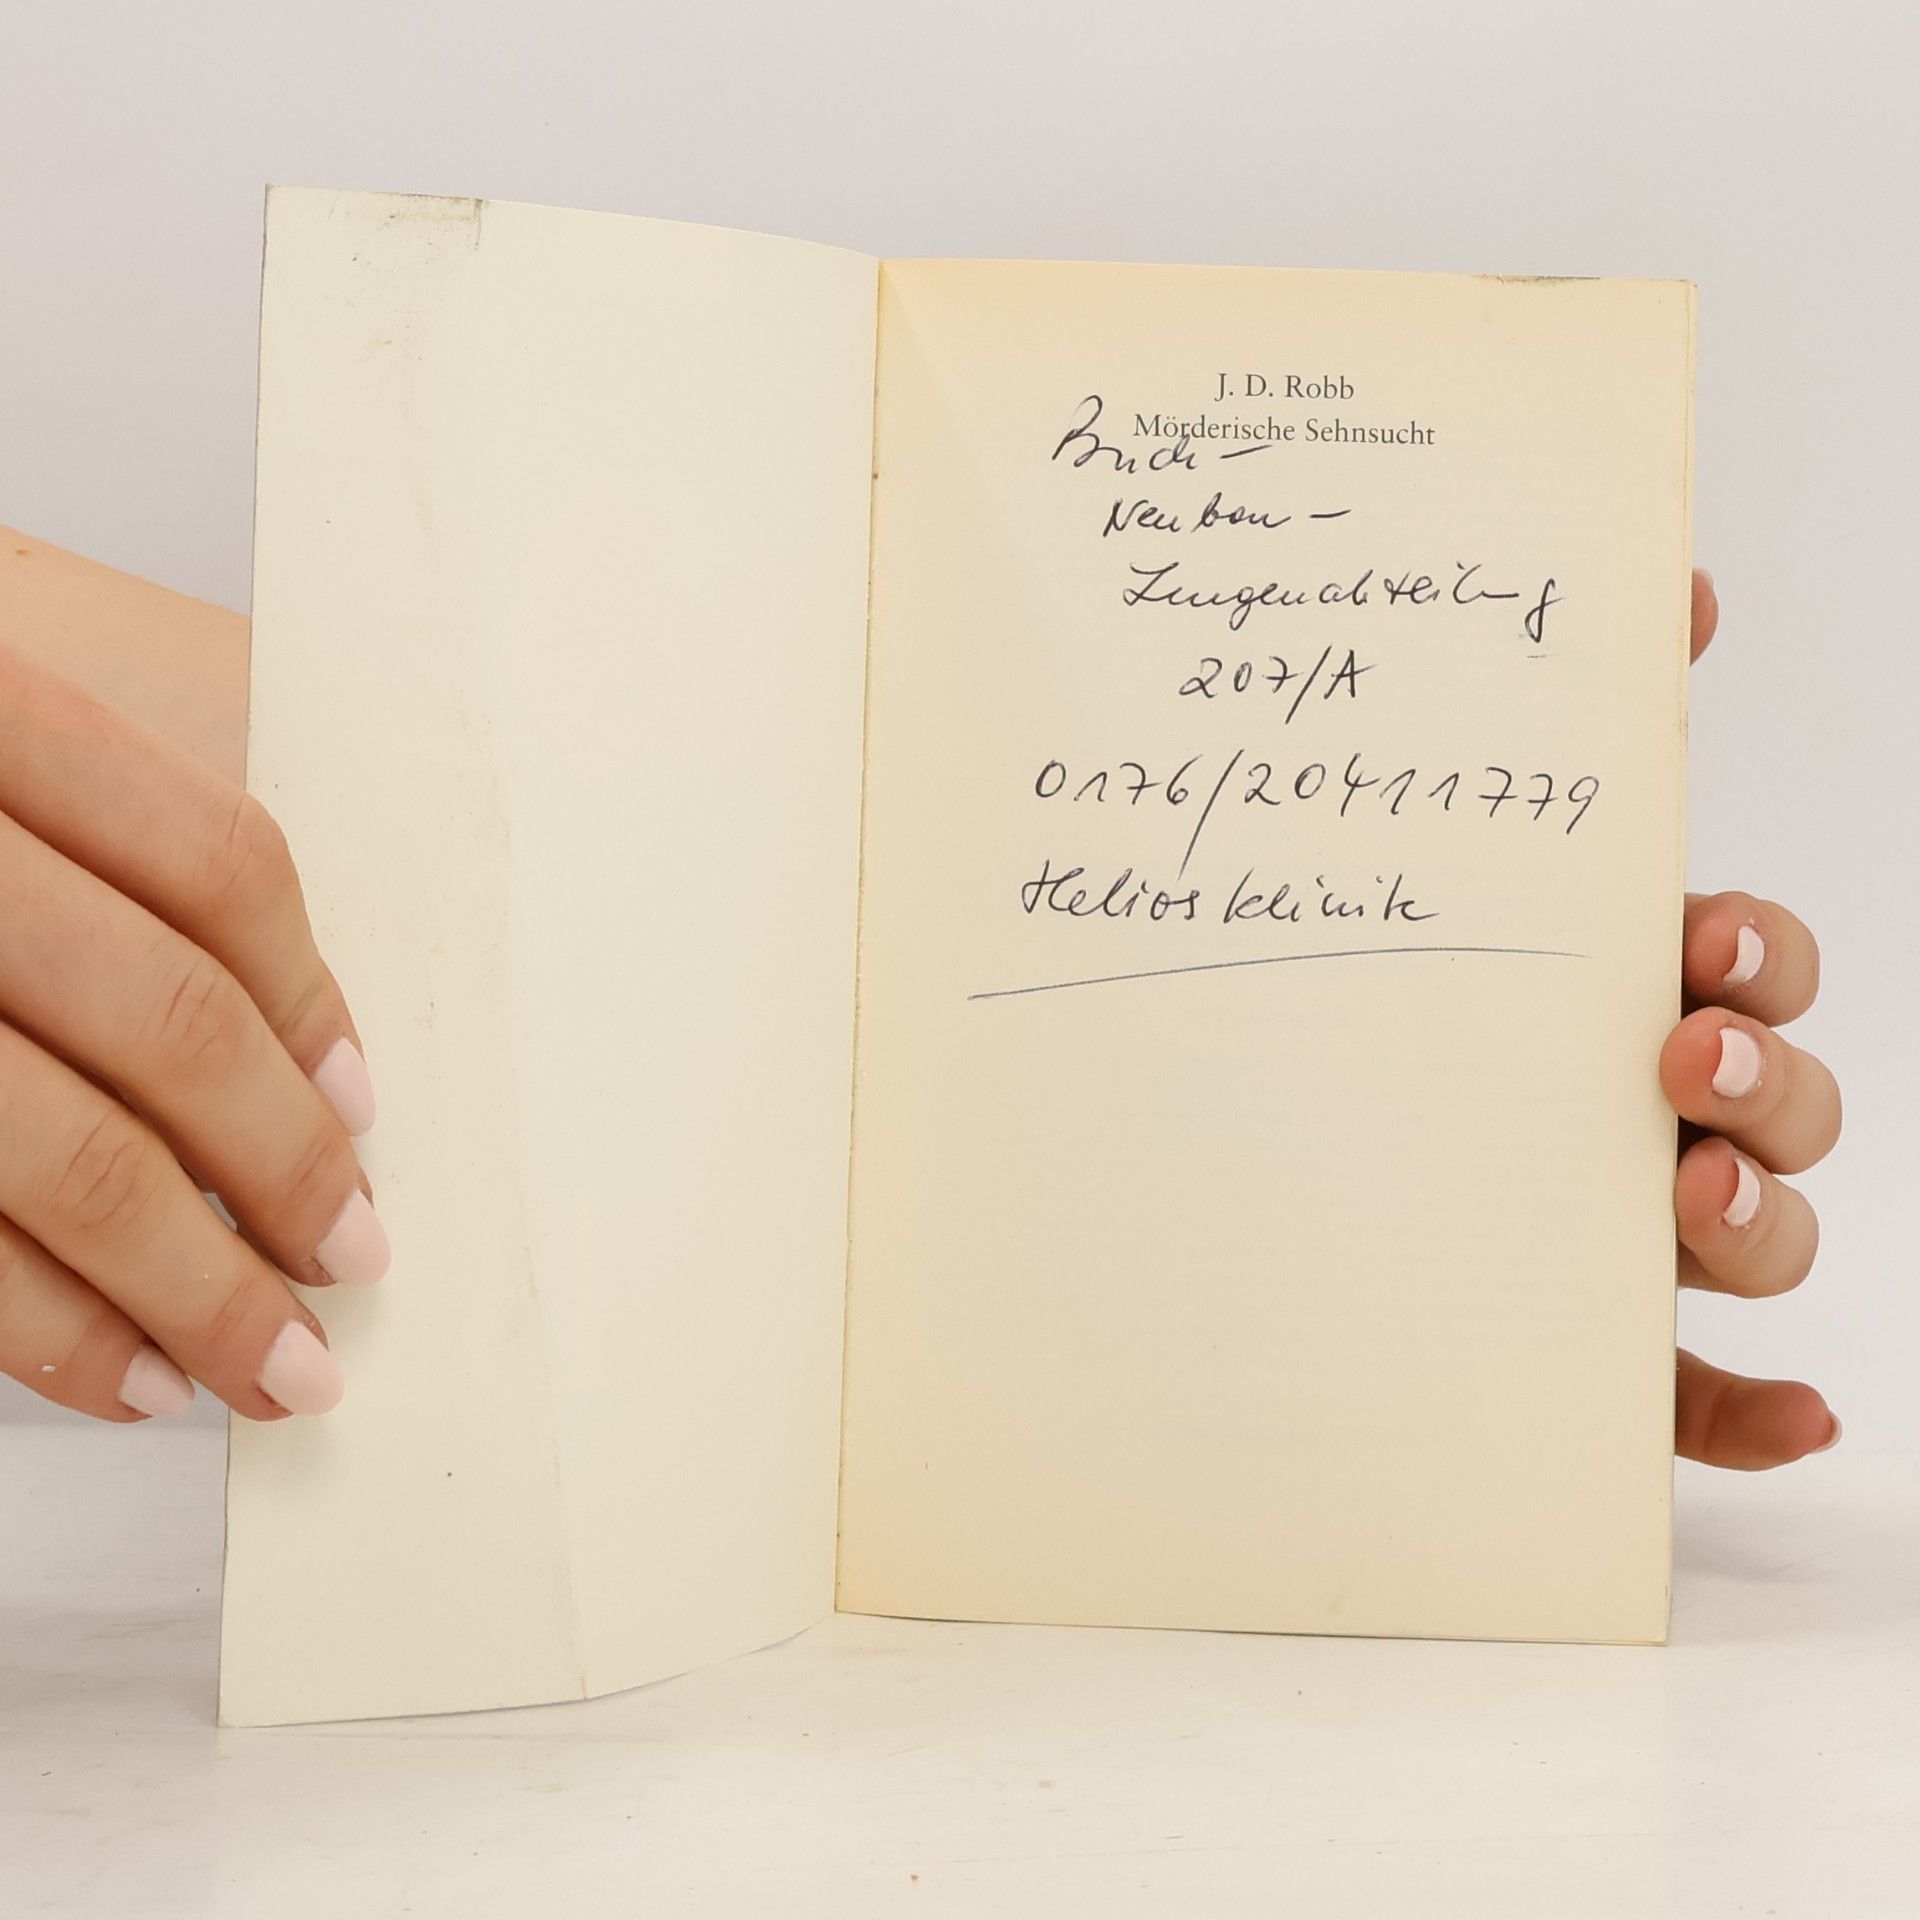 J. D. Robb
Mörderische Sehnsucht
Buch –
Neubau –
Lungenabteilung
207/A
0176/20411779
Helios klinik